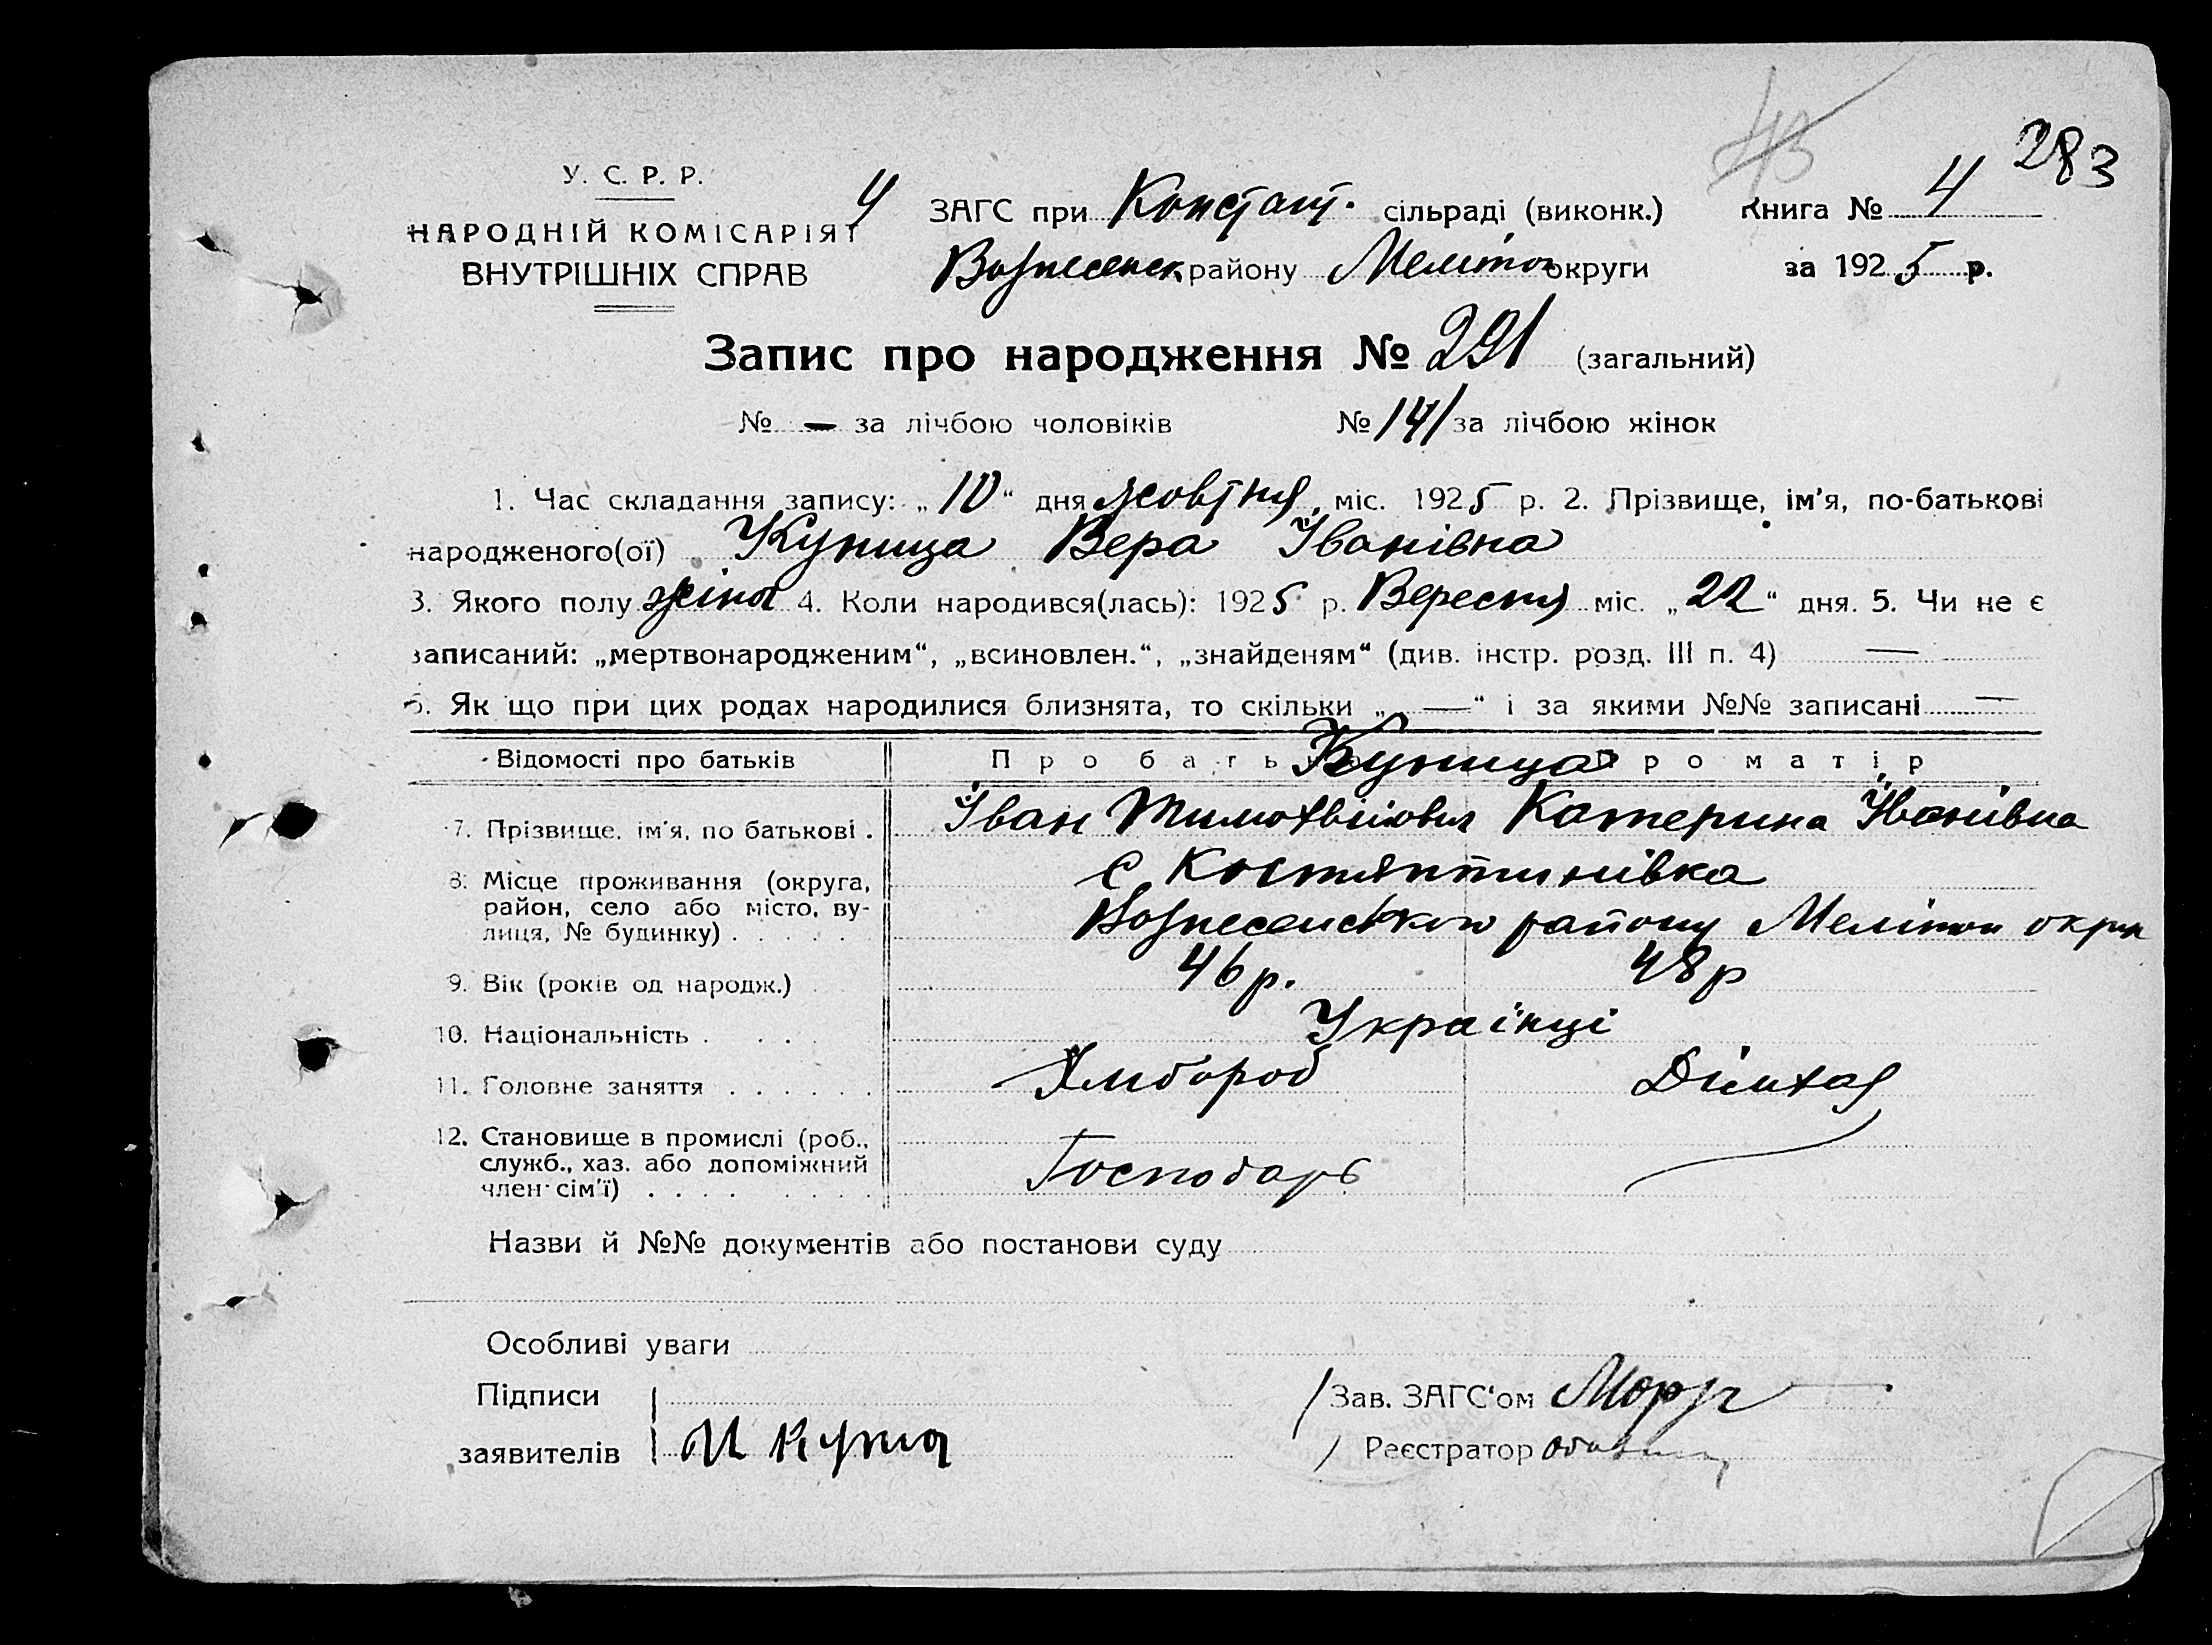 43
283
У. С. Р. Р.
НАРОДНІЙ КОМІСАРІЯТ
ВНУТРІШНІХ СПРАВ
У ЗАГС при Констант. сільраді (виконк.) Книга № 4
Вознесенск району Мелітоп округи за 1925 р.
Запис про народження № 291 (загальний)
№ — за лічбою чоловіків № 141 за лічбою жінок
1. Час складання запису: „10“ дня жовтня міс. 1925 р. 2. Прізвище, ім'я, по-батькові
народженого(ої) Куница Вера Іванівна
3. Якого полу жіноч 4. Коли народився(лась): 1925 р. Вересня міс. „22“ дня. 5. Чи не є
записаний: „мертвонародженим“, „всиновлен.“, „знайденям“ (див. інстр. розд. III п. 4) —
6. Як що при цих родах народилися близнята, то скільки „—“ і за якими №№ записані —
Відомості про батьків Про батька Куница Про матір
7. Прізвище, ім'я, по батькові . Іван Тимофвійович Катерина Іванівна
8. Місце проживання (округа, с Костянтинівка
район, село або місто, ву-
лиця, № будинку) . . . . . Вознесенського району Мелітоп округи
9. Вік (років од народж.) 46 р. 48 р
10. Національність . . . . Українці
11. Головне заняття . . . . . . Хлібороб
12. Становище в промислі (роб.,
служб., хаз. або допоміжний Господарь
член сім'ї) . . . . . . . .
Назви й №№ документів або постанови суду
Особливі уваги
Підписи Зав. ЗАГС'ом
заявителів И Куниц Реєстратор